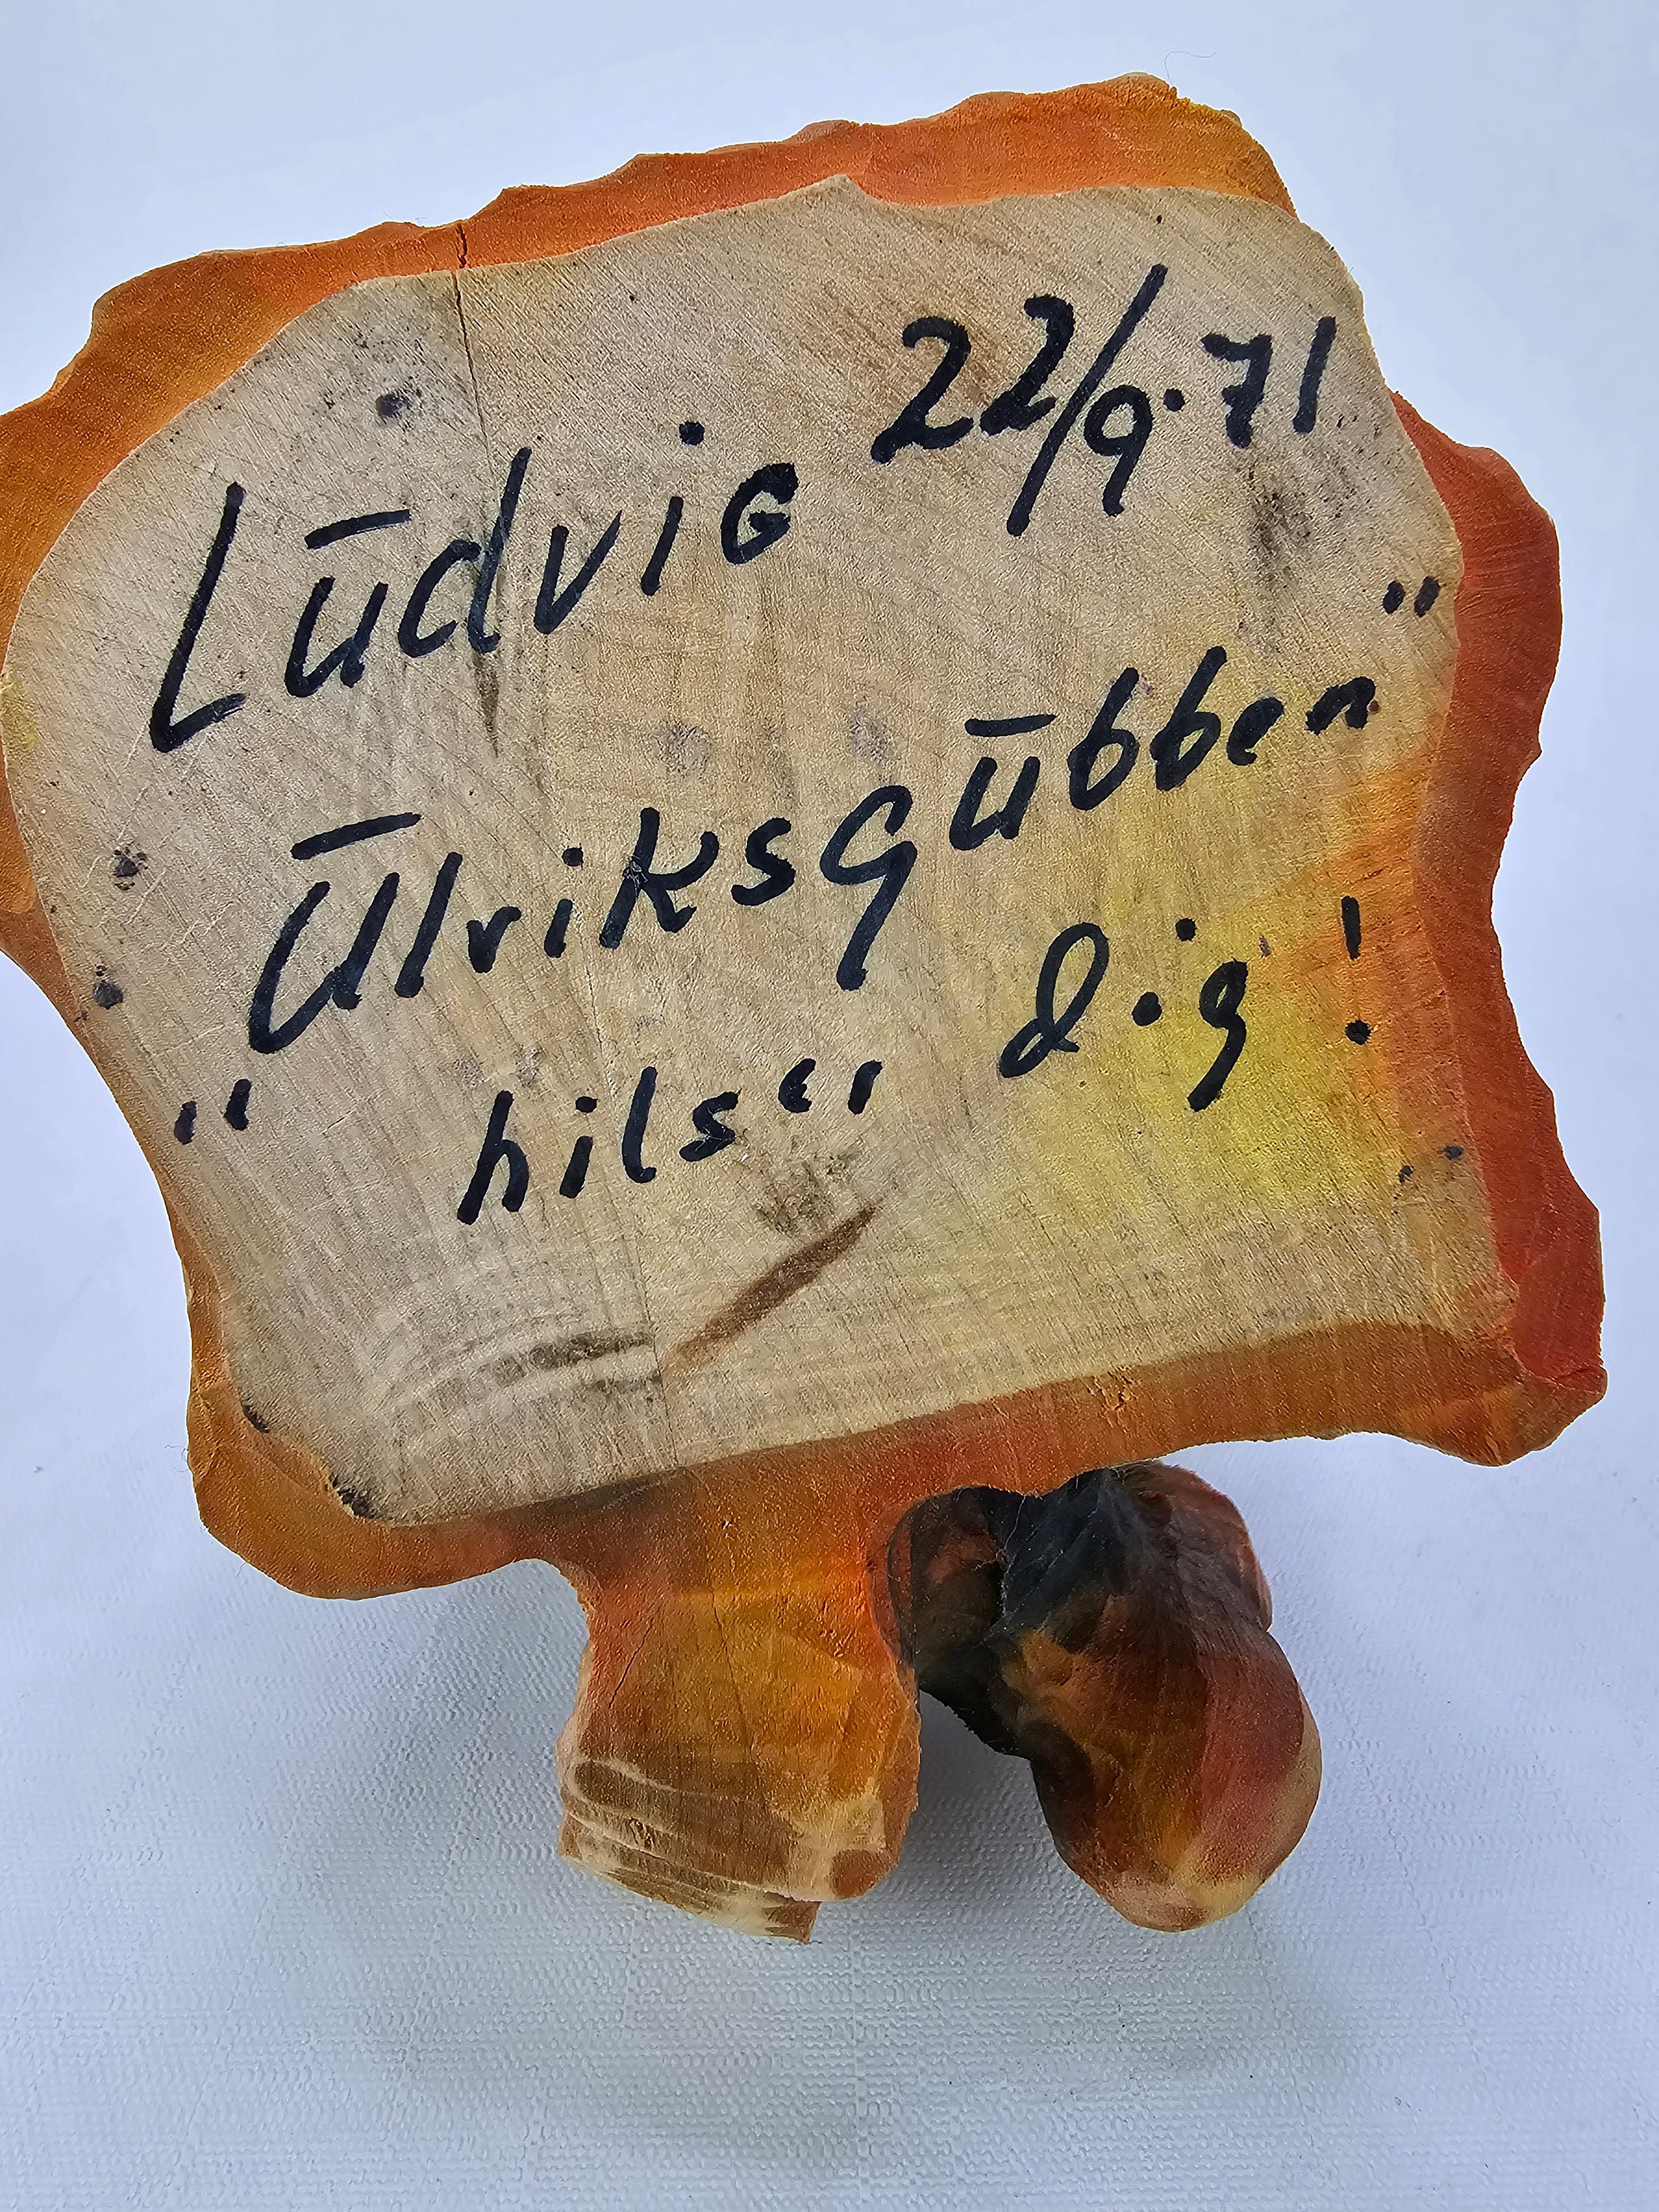 Lūdvig 22/9.71
"Ūlriksgūbben"
hilser dig!